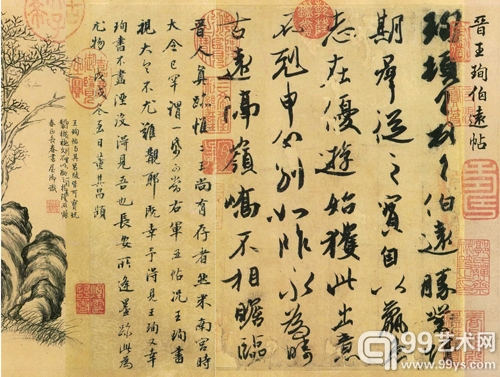 晉王珣伯遠帖
珣頓首頓首伯遠勝業情
期群從之寶自以羸患
志在優遊始獲此出意
不剋申分別如昨永為疇
古遠隔嶺嶠不相瞻臨
晉人真跡惟二王尚有存者然米南宮時
大令已罕謂一紙可當右軍五帖況王珣書
視大令不尤難覯耶既幸予得見王珣又幸
珣書不盡湮沒得見吾也長安所逢墨跡此為
尤物戊戌冬至日董其昌題
王珣帖與其昌跋皆可寶玩
春正長春書屋御識
99艺术网
www.99ys.com